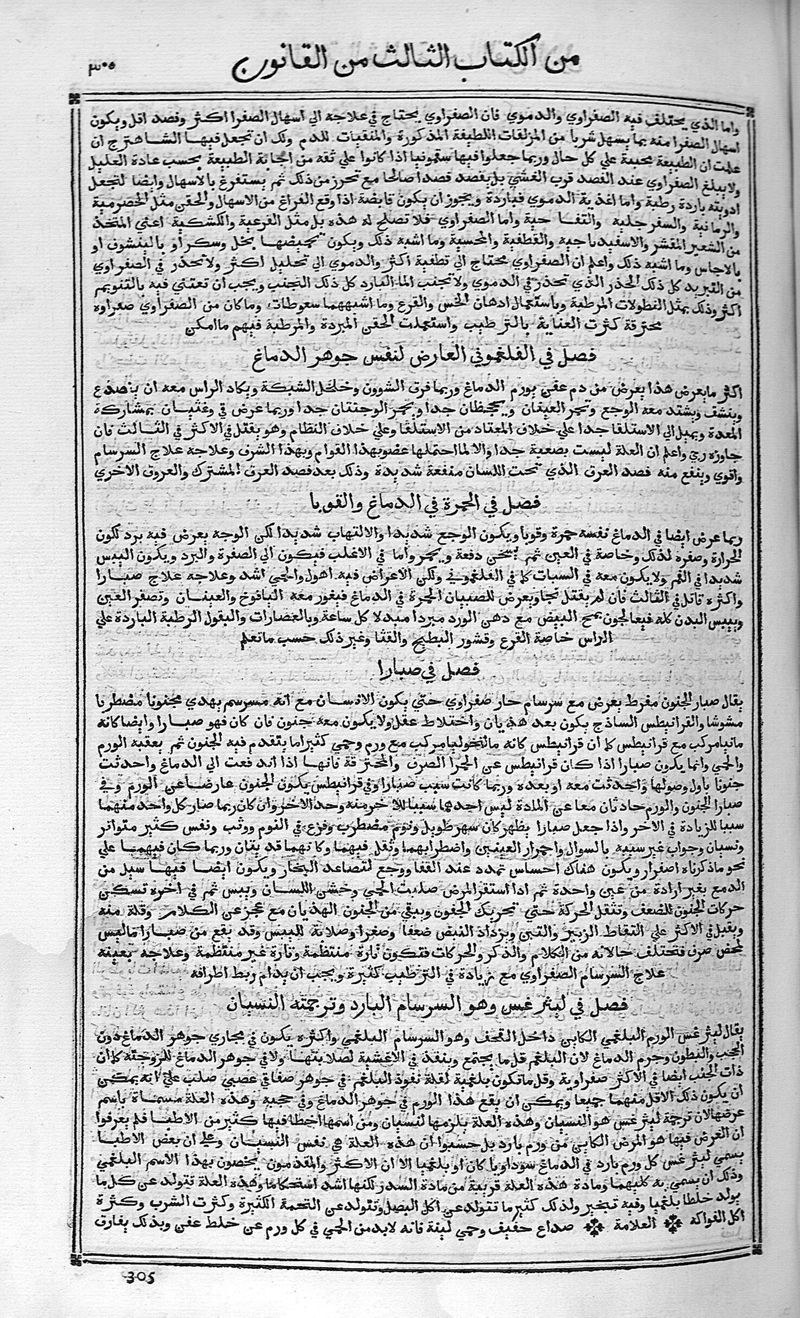 من الكتاب الثالث من القانون
٣٠٥
واما الذي يختلف فيه الصفراوي والدموي فان الصفراوي يحتاج في علاجه الي اسهال الصفرا اكثر وفصد اقل ويكون
اسهال الصفرا منه بما يسهل شربا من المزلقات اللطيفة المذكورة والمنقيات للدم ولك ان تجعل فيها الشاهترج ان
علمت ان الطبيعة مجيبة علي كل حال وربما جعلوا فيها سقمونيا اذا كانوا علي ثقه من اجابة الطبيعة بحسب عادة العليل
ولا يبلغ الصفراوي عند الفصد قرب الغشي بل يفصد فصدا صالحا مع تحرز من ذلك ثم يستفرغ بالاسهال وايضا لتجعل
ادويته باردة رطبة واما اغذية الدموي فباردة ويجوز ان يكون قابضة اذا وقع الفراغ من الاسهال والحقن مثل الحصرمية
والرمانية والسفرجلية والتفاحية واما الصفراوي فلا تصلح له هذه بل مثل القرعية والكشكية اعني المتخذ
من الشعير المقشر والاسفيدباجية والقطفية والمحسية وما اشبه ذلك ويكون تحميضها بخل وسكر او بالنيشوق او
بالاجاص وما اشبه ذلك واعلم ان الصفراوي محتاج الي تطفية اكثر والدموي الي تحليل اكثر ولا تحذر في الصفراوي
من التبريد كل ذلك الحذر الذي تحذر في الدموي ولا يجنب الما البارد كل ذلك التجنب ويجب ان تعتني فيه بالتنويم
اكثر وذلك بمثل النطولات المرطبة وباستعمال ادهان الخس والقرع وما اشبههما سعوطات وما كان من الصفراوي صفراوه
محترقة كثرت العناية بالترطيب واستعملت الحقن المبردة والمرطبة فيهم ما امكن
فصل في الفلغموني العارض لنفس جوهر الدماغ
اكثر ما يعرض هذا يعرض من دم عفن يورم الدماغ وربما فرق الشوون وخلخل الشبكة ويكاد الراس معه ان ينصدع
وينشف ويشتد معه الوجع وتحمر العينان ويجحظان جدا ويحمر الوجنتان جدا وربما عرض في وغثيان بمشاركة
المعدة ويميل الي الاستلقا جدا علي خلاف المعتاد من الاستلقا وعلي خلاف النظام وهو يقتل في الاكثر في الثالث فان
جاوزه رجي واعلم ان العلة ليست بصعبة جدا والا لما احتملها عضو بهذا القوام وبهذا الشرف وعلاجه علاج السرسام
واقوي وينفع منه فصد العرق الذي تحت اللسان منفعة شديدة وذلك بعد فصد العرق المشترك والعروق الاخري
فصل في الحمرة في الدماغ والقوبا
ربما عرض ايضا في الدماغ نفسه حمرة وقوبا ويكون الوجع شديدا والالتهاب شديدا لكن الوجه يعرض فيه برد لكمون
الحرارة وصفره لذلك وخاصة في العين ثم يسخن دفعة ويحمر واما في الاغلب فيكون الي الصفرة والبرد ويكون اليبس
شديدا في الفم ولا يكون معه في السبات كما في الفلغموني ولكن الاعراض فيه اهول والحمي اشد وعلاجه علاج صبارا
واكثره قاتل في الثالث فان لم يقتل نجا ويعرض للصبيان الحمرة في الدماغ فيغور معه اليافوخ والعينان وتصفر العين
وييبس البدن كله فيعالجون بمح البيض مع دهن الورد مبردا مبدلا كل ساعة وبالعصارات والبقول الرطبة الباردة علي
الراس خاصة القرع وقشور البطيخ والقثا وغير ذلك حسب ما تعلم
فصل في صبارا
يقال صبارا لجنون مفرط يعرض مع سرسام حار صفراوي حتي يكون الانسان مع انه مسرسم يهدي مجنونا مضطربا
مشوشا والقرانيطس الساذج يكون بعد هذيان واختلاط عقل ولا يكون معه جنون فان كان فهو صبارا وايضا كانه
مانيا مركب مع قرانيطس كما ان قرانيطس كانه مالنخوليا مركب مع ورم وحمي كثيرا ما يتقدم فيه الجنون ثم يعقبه الورم
والحمي وانما يكون صبارا اذا كان قرانيطس عن الحمرا الصرف والمحترقة فانها اذا اندفعت الي الدماغ واحدثت
جنونا باول وصولها واحدثت معه او بعده وربما كانت سبب صبارا وفي قرانيطس يكون الجنون عارضا عن الورم وفي
صبارا الجنون والورم حادثان معا عن المادة ليس احدهما سببا للاخر منه وحد الاخر وان كان ربما صار كل واحد منهما
سببا للزيادة في الاخر واذا جعل صبارا يظهر كان سهر طويل ونوم مضطرب وفزع في النوم ووثب ونفس كثير متواتر
ونسيان وجواب غير شبيه بالسوال واحمرار العينين واضطرابهما وثقل فيهما وكانهما قذيتان وربما كان فيهما علي
نحو ما ذكرناه اصفرار ويكون هناك احساس تمدد عند القفا ووجع لتصاعد البخار ويكون ايضا فيها سيل من
الدمع بغير ارادة من عين واحدة ثم اذا استقر المرض صلبت الحمي وخشن اللسان ويبس ثم في اخره تسكن
حركات الجنون للضعف وتثقل الحركة حتي تحريك الجفون ويبقي من الجنون الهذيان مع عجز عن الكلام وقلة منه
ويقبل في الاكثر علي التقاط الزبير والتبن ويزداد النبض ضعفا وصغرا وصلابة لليبس وقد يقع من صبارا ما ليس
بمحض صرف فتختلف حالاته من الكلام والذكر والحركات فتكون تارة منتظمة وتارة غير منتظمة وعلاجه بعينه
علاج السرسام الصفراوي مع زيادة في الترطيب كثيرة ويجب ان يدام ربط اطرافه
فصل في ليثرغس وهو السرسام البارد وترجمته النسيان
يقال ليثرغس الورم البلغمي الكاين داخل القحف وهو السرسام البلغمي واكثره يكون في مجاري جوهر الدماغ دون
الحجب والبطون وجرم الدماغ لان البلغم قلما يجتمع وينفذ في الاغشية لصلابتها ولا في جوهر الدماغ للزوجته كما ان
ذات الجنب ايضا في الاكثر صفراوية وقل ما تكون بلغمية لقلة نفوذ البلغم في جوهر صفاقي عصبي صلب علي انه يمكن
ان يكون ذلك الاقل منهما جميعا ويمكن ان يقع هذا الورم في جوهر الدماغ وفي حجبه وهذه العلة مسماة باسم
عرضها لان ترجمة ليثرغس هو النسيان وهذه العلة يلزمها نسيان ومن اسمها اخطا فيها كثير من الاطبا فلم يعرفوا
ان الغرض فيها هو المرض الكاين من ورم بارد بل حسبوا ان هذه العلة هي نفس النسيان وعلي ان بعض الاطبا
يسمي ليثرغس كل ورم بارد في الدماغ سوداويا كان او بلغميا الا ان الاكثر والمقدمون يخصون بهذا الاسم البلغمي
وذلك ان يسمي به كليهما ومادة هذه العلة قريبة من مادة السدر لكنها اشد استحكاما وهذه العلة تتولد عن كل ما
يولد خلطا بلغميا وفيه تبخير ولذلك كثير ما تتولد عن اكل البصل وتتولد عن التخمة الكثيرة وكثرت الشرب وكثرة
اكل الفواكه العلامة صداع خفيف وحمي لينة فانه لا بد من الحمي في كل ورم عن خلط عفن وبذلك يفارق
305